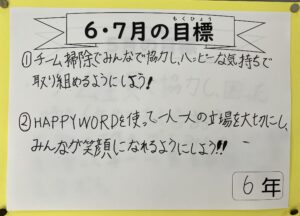 もくひょう
6・7月の目標
①チーム掃除でみんなで協力し、ハッピーな気持ちで
取り組めるようにしよう!
②HAPPYWORDを使って一人一人の立場を大切にし、
みんなが笑顔になれるようにしよう!!
6年